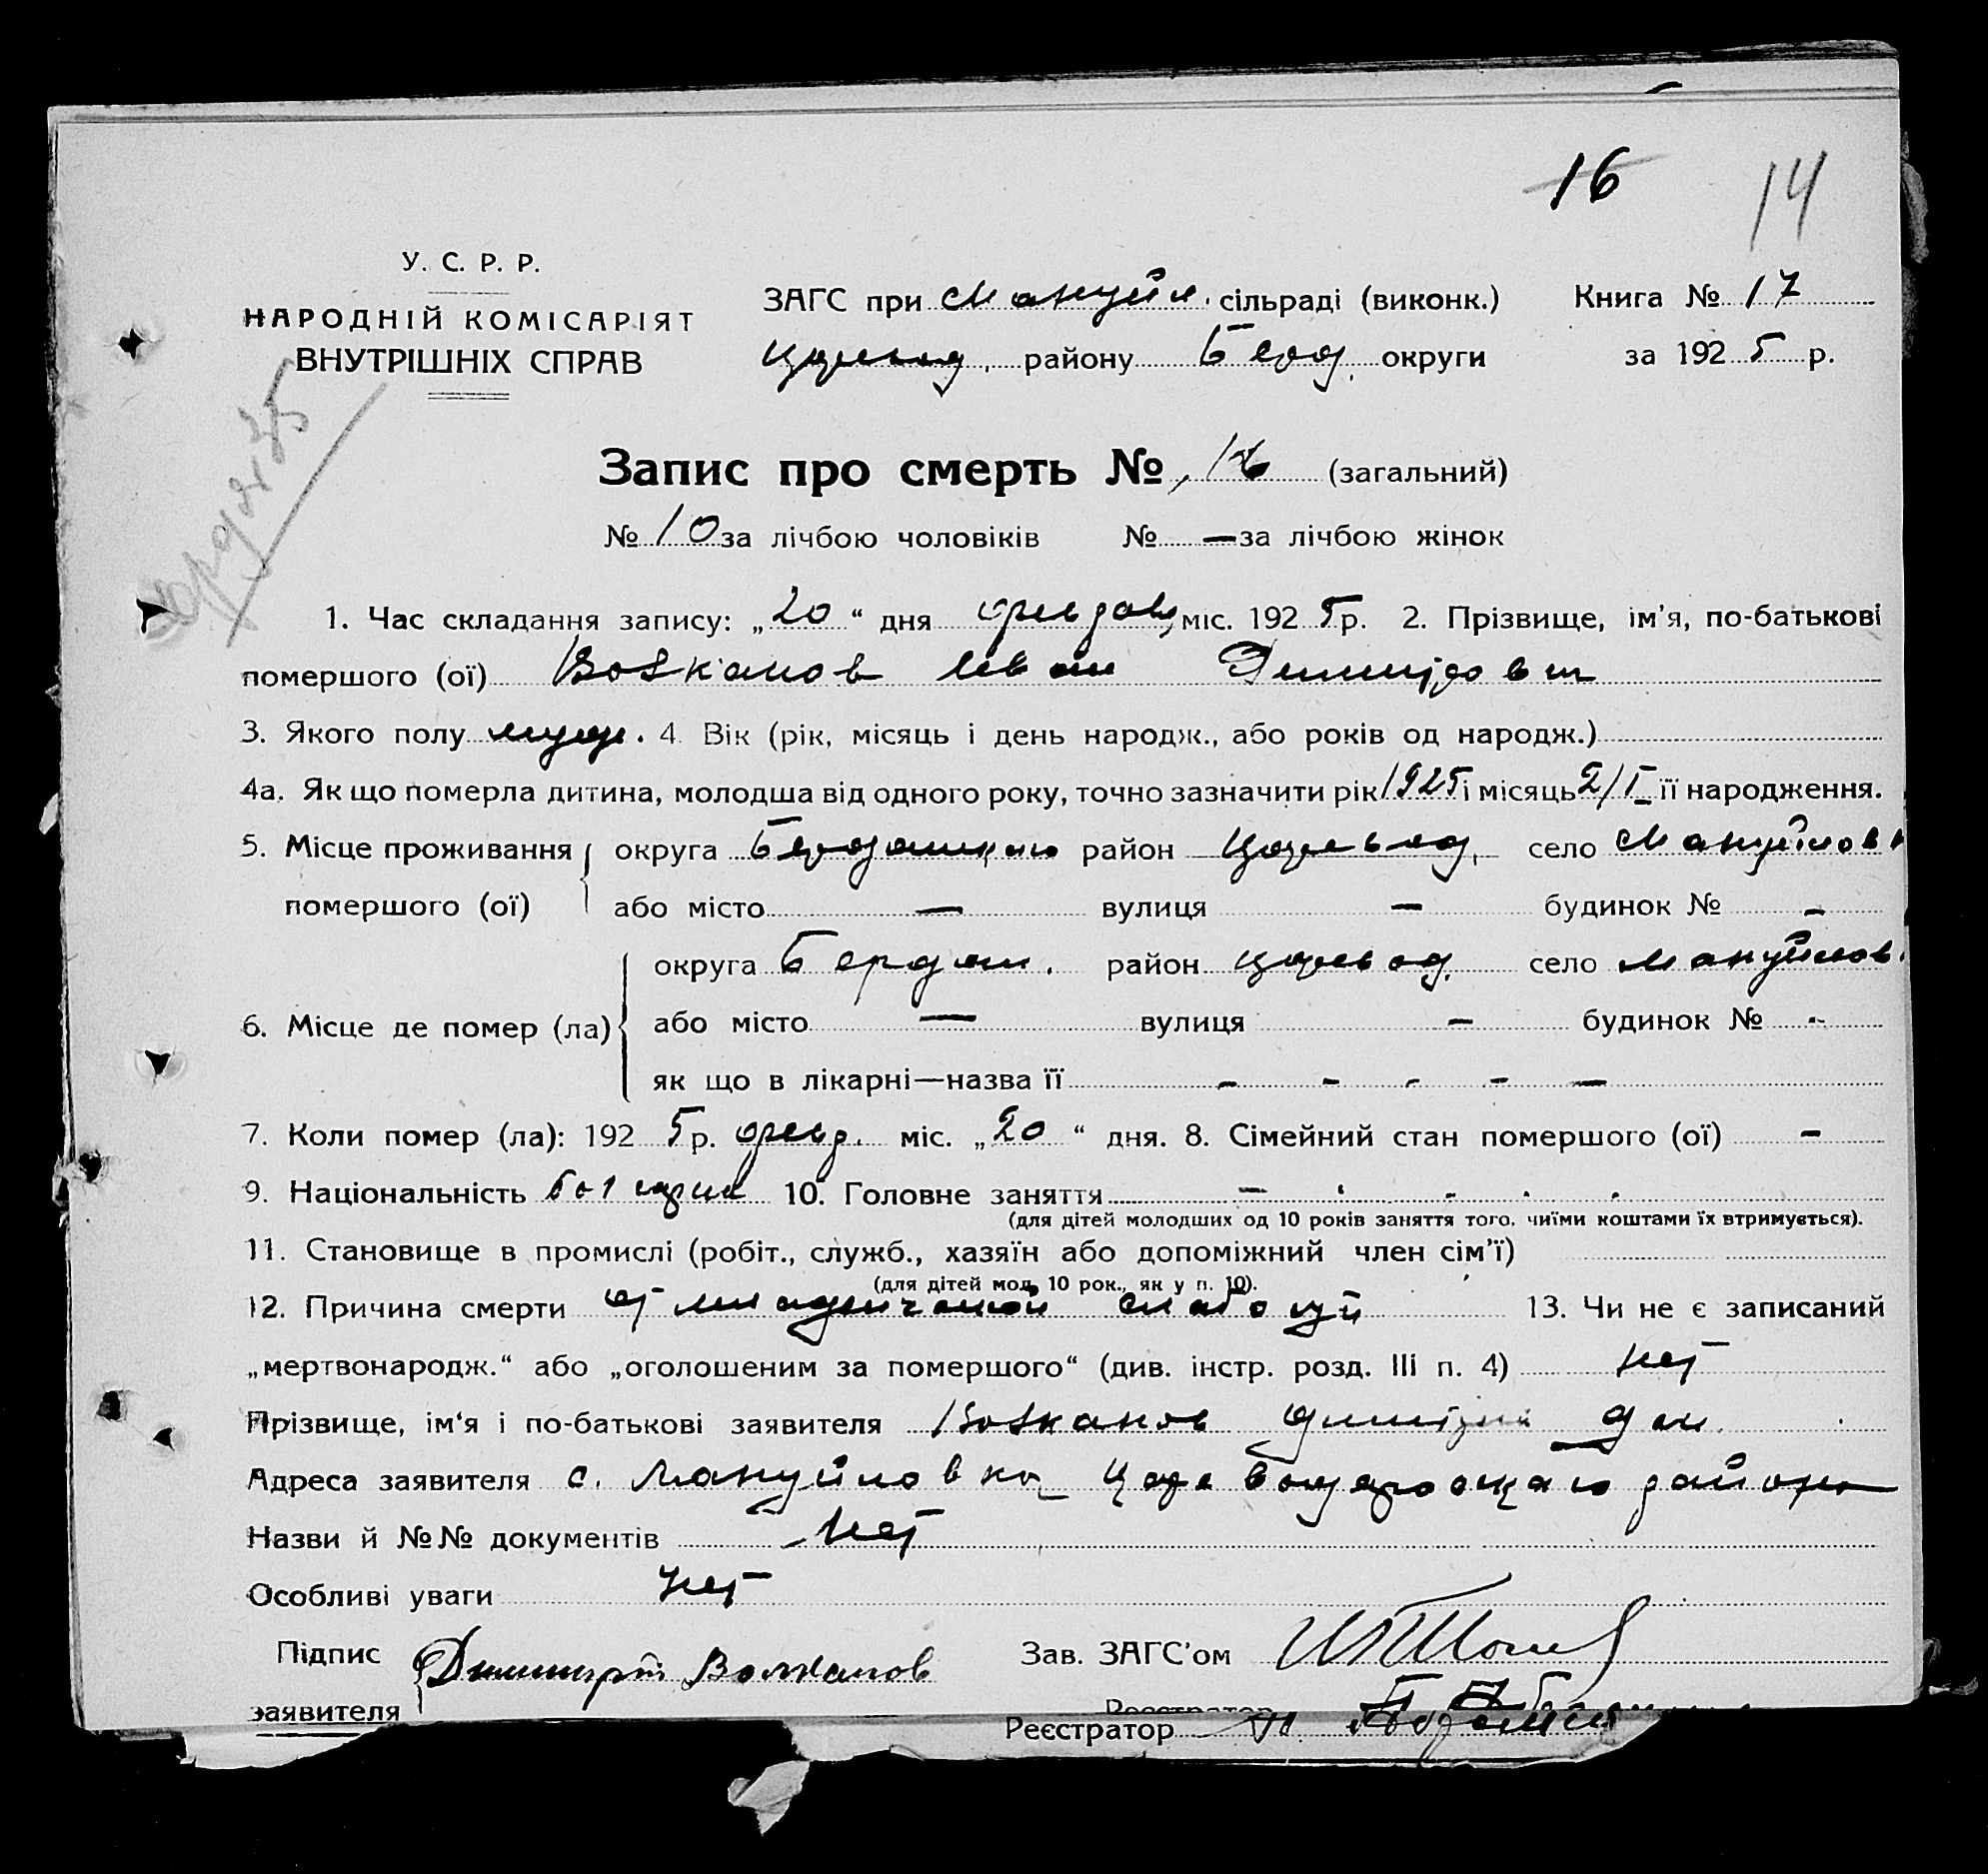 16 14
У. С. Р. Р.
НАРОДНІЙ КОМІСАРІЯТ
ВНУТРІШНІХ СПРАВ
ЗАГС при Мануйл. сільраді (виконк.) Книга № 17
Царевод. району Берд. округи за 1925 р.
Запис про смерть № 16 (загальний)
№ 10 за лічбою чоловіків № — за лічбою жінок
1. Час складання запису: „20“ дня февраля міс. 1925 р. 2. Прізвище, ім'я, по-батькові
помершого (ої) Волканов Иван
3. Якого полу муж. 4. Вік (рік, місяць і день народж., або років од народж.)
4а. Як що померла дитина, молодша від одного року, точно зазначити рік 1925 і місяць 2/I її народження.
5. Місце проживання округа район Царевод. село Мануйловк
помершого (ої) або місто — вулиця — будинок № –
округа Бердян. район Царевод. село Мануйлов.
6. Місце де помер (ла) або місто — вулиця – будинок № -
як що в лікарні—назва її - - - - —
7. Коли помер (ла): 1925 р. февр. міс. „20“ дня. 8. Сімейний стан помершого (ої) –
9. Національність болгарин 10. Головне заняття –
(для дітей молодших од 10 років заняття того, чиїми коштами їх втримується).
11. Становище в промислі (робіт., служб., хазяїн або допоміжний член сім'ї)
(для дітей мол. 10 рок., як у п. 10).
12. Причина смерти от младенческой 13. Чи не є записаний
„мертвонародж.“ або „оголошеним за помершого“ (див. інстр. розд. III п. 4) нет
Прізвище, ім'я і по-батькові заявителя Волканов Димитрий
Адреса заявителя с. Мануйловка района
Назви й №№ документів нет
Особливі уваги нет
Підпис Димитрий Волканов Зав. ЗАГС'ом
заявителя Реєстратор
Реєстратор